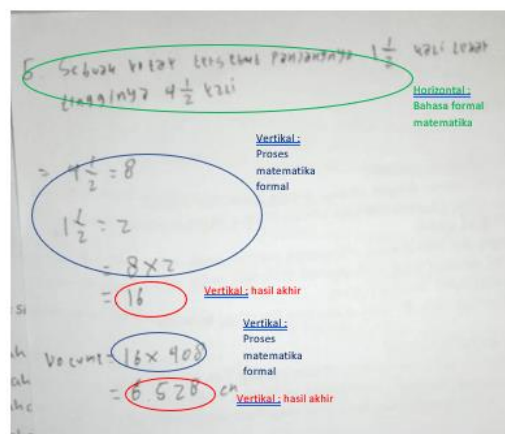 5. Sebuah kotak tersebut panjangnya 1 1/2 kali lebar
tingginya 4 1/2 kali
Horizontal :
Bahasa formal
matematika
Vertikal :
Proses
matematika
formal
= 4 1/2 = 8
1 1/2 = 2
= 8 x 2
= 16
Vertikal : hasil akhir
si
Vertikal :
Proses
matematika
formal
ah
Volume = 16 x 408
ah
= 6.528 cm
Vertikal : hasil akhir